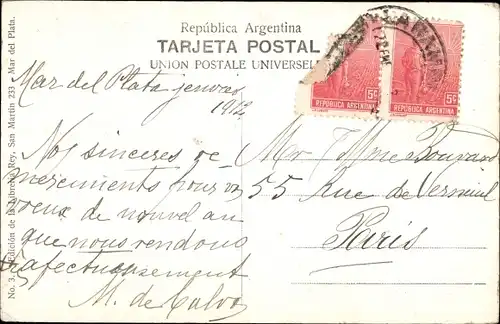 República Argentina
TARJETA POSTAL
UNION POSTALE UNIVERSELLE
5c
REPÚBLICA ARGENTINA
5c
REPÚBLICA ARGENTINA
Mar del Plata
1912
Nos sinceres re
merciments pour vos
voeux de nouvel an
que nous rendons
affectueusement
M. de Calvo
Mr Mme
55 Rue de Verneuil
Paris
Edición de la Librería Rey, San Martín 233 - Mar del Plata.